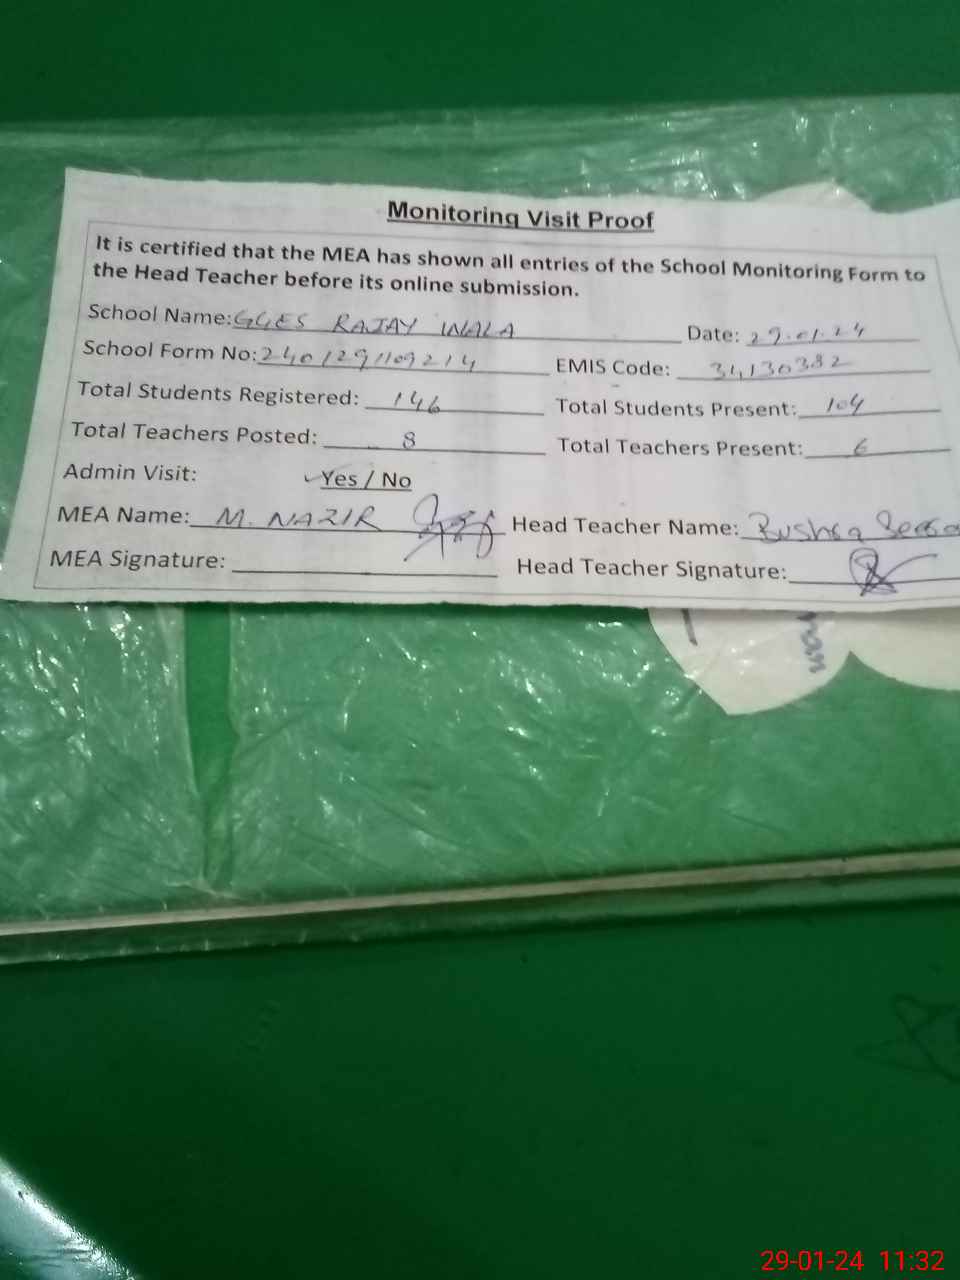 Monitoring Visit Proof
It is certified that the MEA has shown all entries of the School Monitoring Form to
the Head Teacher before its online submission.
School Name: GGES RAJAY WALA Date: 29.01.24
School Form No: 240129109214 EMIS Code: 34130382
Total Students Registered: 146 Total Students Present: 104
Total Teachers Posted: 8 Total Teachers Present: 6
Admin Visit: Yes / No
MEA Name: M. NAZIR Head Teacher Name: Bushra
MEA Signature: Head Teacher Signature:
man
29-01-24 11:32